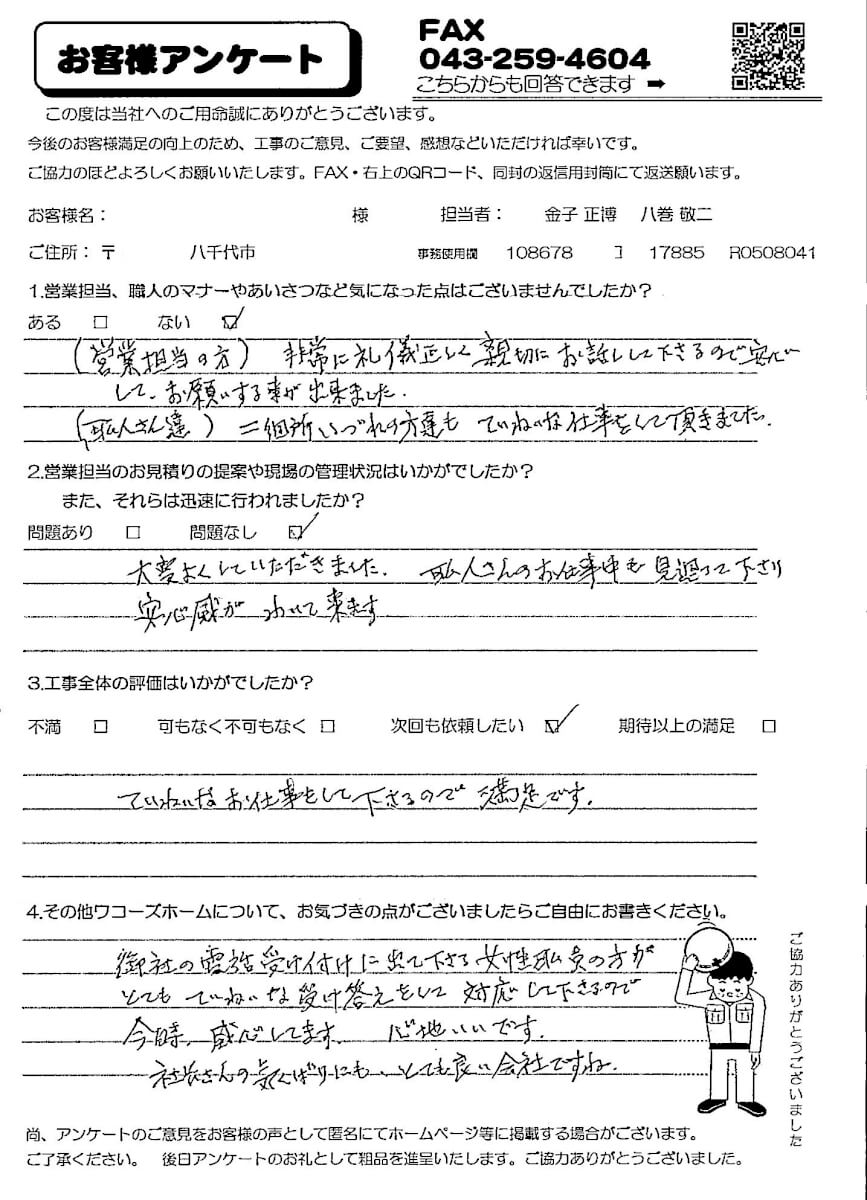 お客様アンケート
FAX
043-259-4604
こちらからも回答できます ➡
この度は当社へのご用命誠にありがとうございます。
今後のお客様満足の向上のため、工事のご意見、ご要望、感想などいただければ幸いです。
ご協力のほどよろしくお願いいたします。FAX・右上のQRコード、同封の返信用封筒にて返送願います。
お客様名： 様 担当者： 金子 正博 八巻 敬二
ご住所：〒 八千代市 事務使用欄 108678 ｺ 17885 R0508041
1.営業担当、職人のマナーやあいさつなど気になった点はございませんでしたか？
ある □ ない ☑
(営業担当の方) 非常に礼儀正しく親切にお話しして下さるので安心
して、お願いする事が出来ました.
(職人さん達) 二個所いづれの方達も ていねいな仕事をして頂きました.
2.営業担当のお見積りの提案や現場の管理状況はいかがでしたか？
また、それらは迅速に行われましたか？
問題あり □ 問題なし ☑
大変よくしていただきました. 職人さんのお仕事中も見廻って下さり
安心感が わいて来ます
3.工事全体の評価はいかがでしたか？
不満 □ 可もなく不可もなく □ 次回も依頼したい ☑ 期待以上の満足 □
ていねいなお仕事をして下さるので 満足です.
4.その他ワコーズホームについて、お気づきの点がございましたらご自由にお書きください。
御社の電話受け付けに出て下さる女性職員の方が
とても ていねいな受け答えをして 対応して下さるので
今時、感心してます. 心地いいです.
社長さんの気くばりにも、とても良い会社ですね.
ご協力ありがとうございました
尚、アンケートのご意見をお客様の声として匿名にてホームページ等に掲載する場合がございます。
ご了承ください。 後日アンケートのお礼として粗品を進呈いたします。ご協力ありがとうございました。